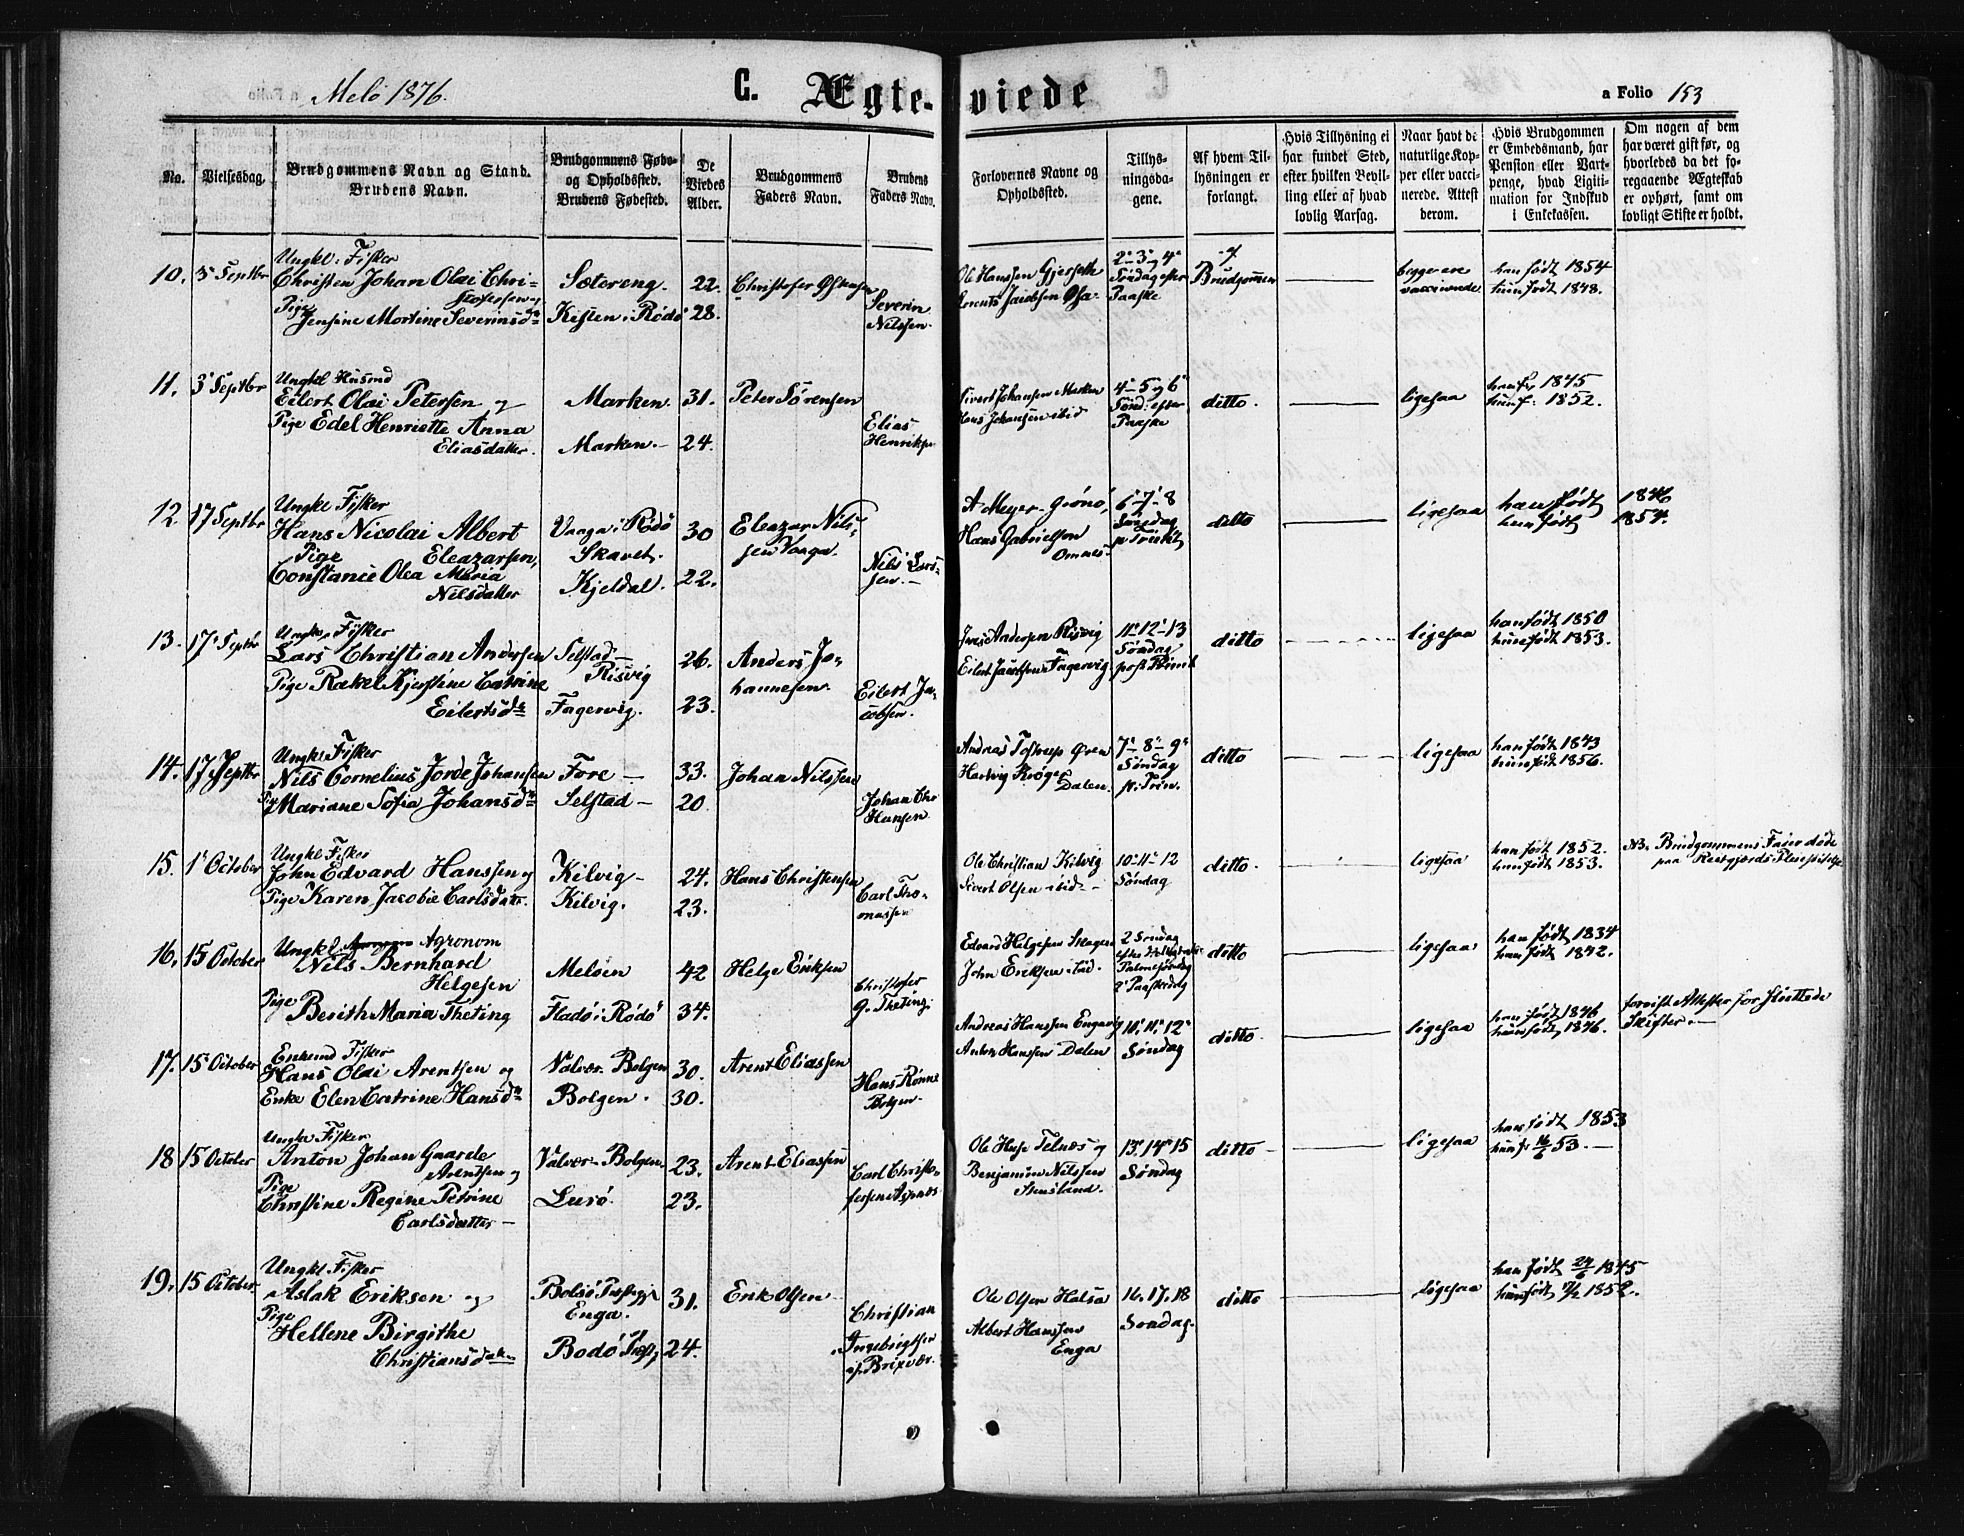 Melö 1876.
C. Ægte-
viede
a Folio 153
No.
Vielsesdag.
Brudgommens Navn og Stand.
Brudens Navn.
Brudgommens Føde-
og Opholdssted.
Brudens Fødested.
De
Viedes
Alder.
Brudgommens
Faders Navn.
Brudens
Faders Navn.
Forlovernes Navne og
Opholdssted.
Tillys-
ningsda-
gene.
Af hvem Til-
lysningen er
forlangt.
Hvis Tillysning ei
har fundet Sted,
efter hvilken Bevil-
ling eller af hvad
lovlig Aarsag.
Naar havt de
naturlige Kop-
per eller vacci-
nerede. Attest
derom.
Hvis Brudgommen
er Embedsmand, har
Pension eller Vart-
penge, hvad Ligiti-
mation for Indskud
i Enkekassen.
Om nogen af dem
har været gift før, og
hvorledes da det fo-
regaaende Ægteskab
er ophørt, samt om
lovligt Skifte er holdt.
10. 3 Septbr
Ungkl. Fisker
Christen Johan Olai Chri-
stofersen og
Pige
Jensine Mortine Severinsdr
Sætereng.
Kisten i Rödö
22.
28.
Christofer
Severin
Nilssen.
Ole Hanssen Gjerseth
Lorents Jacobsen
2- 3 og 4
Söndag efter
Paaske
af
Brudgommen
begge ere
vaccinerede
han født 1854
hun født 1848.
11. 3 Septbr
Ungkl Husmd
Eilert Olai Petersen og
Pige Edel Henriette Anna
Eliasdatter.
Marken.
Marken.
31.
24.
Peter Sørensen
Elias
Henriksen
Sivert Johansen Marken
Hans Johansen ibid
4- 5 og 6
Sönd: efter
Paaske
ditto.
ligesaa
han f. 1845
hun f: 1852.
12. 17 Septbr
Ungkl Fisker
Hans Nicolai Albert
Eleazarsen,
Pige
Constance Olea Maria
Nilsdatter
Vaaga i Rödö
Skavet.
Kjeldal.
30
22.
Eleazar Nils-
sen Vaaga.
Nils Lars-
sen.
A Meyer Grönö,
Hans Gabrielsen
Omnes
6-7-8
Søndag
p. Trinit
ditto
ligesaa
han født 1846
hun født 1854.
13. 17 Septbr
Ungk. Fisker
Lars Christian Andersen
Pige Rakel Kjerstine Catrine
Eilertsdr
Selstad
Risvig
Fagervig.
26.
23.
Anders Jo-
hannesen.
Eilert Ja-
cobsen.
Jens Andersen Risvig
Eilert Jacobsen Fagervig
11 12 13
Søndag
post Trinit
ditto
ligesaa
han født 1850
hun født 1853.
14. 17 Septbr
Ungk. Fisker
Nils Cornelius Jorde Johansen
Pige Mariane Sofia Johansdr
Fore
Selstad
33.
20.
Johan Nilssen
Johan Chr
Hansen
Andreas Tostrup Øren
Hartvig Krøger
Dalen.
7- 8- 9
Søndag
p. Trin.
ditto
ligesaa
han født 1843
hun født 1856.
15. 1 October
Ungkl Fisker
John Edvard Hanssen og
Pige Karen Jacobie Carlsdatr.
Kilvig
Kilvig.
24.
23.
Hans Christensen
Carl Tho-
massen
Ole Christian Kilvig
Sivert Olsen ibid
10 11 12
Søndag
ditto.
ligesaa
han født 1852.
hun født 1853.
NB. Brudgommens Fader døde
paa
16. 15 October
Ungkl Agronom
Nils Bernhard
Helgesen
Pige
Berith Maria Theting
Melöen
Fladö i Rödö
42
34.
Helge Eriksen
Christofer
G. Theting.
Edvard Helgesen
John Eriksen ibid.
2 Søndag
Palmesøndag
2 Paaskedag
ditto
ligesaa
han født 1834
hun født 1842.
17. 15 October
Enkemd Fisker
Hans Olai Arentsen og
Enke Elen Catrine Hansdr
Valvær Bolgen
Bolgen.
30.
30.
Arent Eliassen
Hans Rønne
Bolgen
Andreas Hanssen Engavig
Anders Hanssen Dalen
10. 11. 12
Søndag
ditto
ligesaa
han født 1846
hun født 1846.
forevist Attester for sluttede
Skifter.
18 15 October
Ungkr Fisker
Anton Johan Gaarde
Arentsen og
Pige
Christine Regine Petrine
Carlsdatter
Valvær Bolgen.
Lurö.
23.
23.
Arent Eliassen
Carl Christo-
fersen
Ole Huse Telnæs og
Benjamin Nilssen
Stensland.
13. 14 15
Søndag
ditto
ligesaa
han født 1853
hun f. 16/6 53.
19. 15 October
Ungkl Fisker
Aslak Eriksen og
Pige
Hellene Birgithe
Christiansdatr
Bolsö Præstegj
Enga.
Bodö Præstgj
31.
24.
Erik Olsen
Christian
Ingebrigtsen
Ole Olsen Halsa
Albert Hanssen
Enga
16. 17. 18
Søndag.
ditto
ligesaa
han født 24/6 1845
hun født 1852.